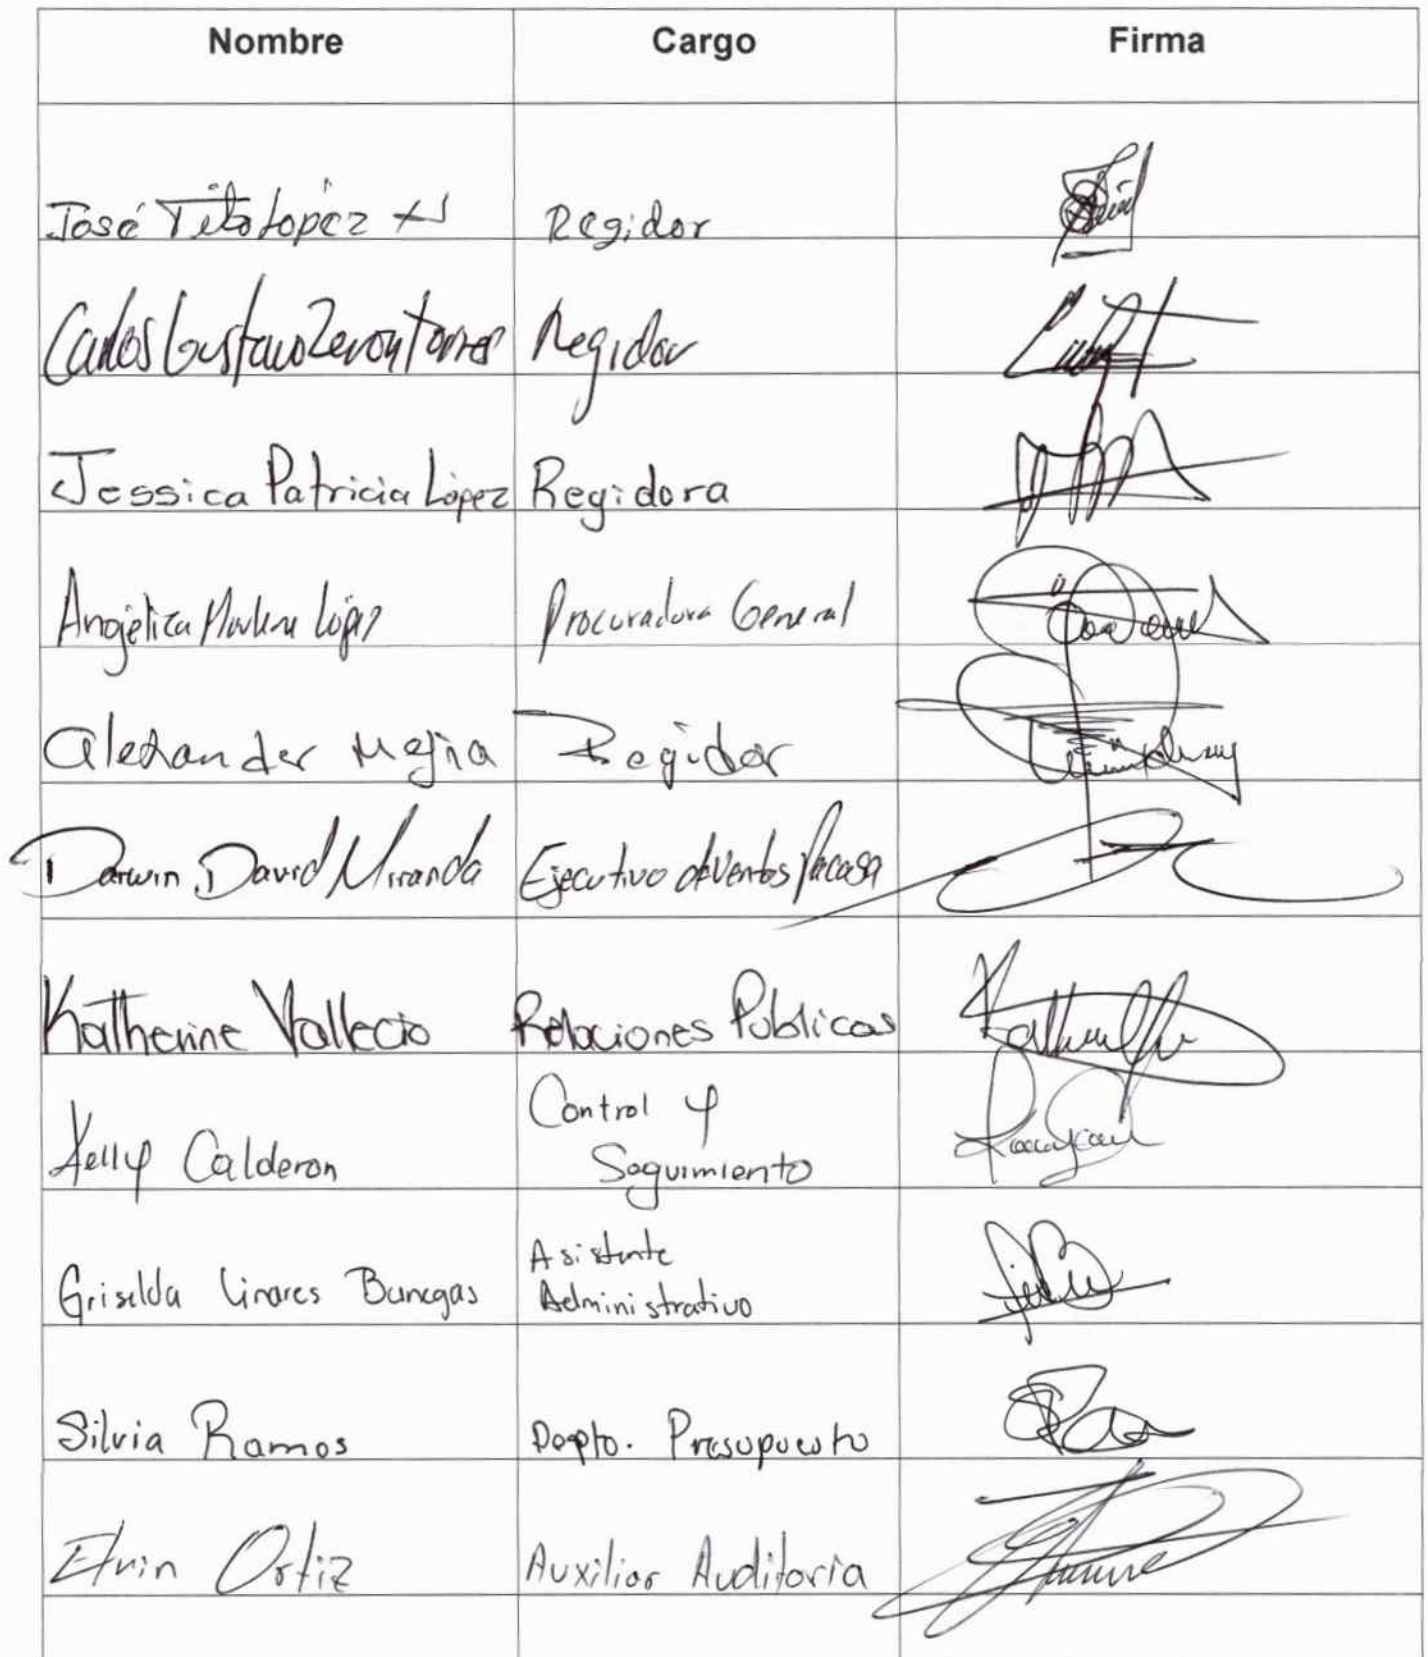 Nombre Cargo Firma
José Tito Lopez N Regidor
Carlos Gustavo Zeron Torres Regidor
Jessica Patricia López Regidora
Angélica López Procuradora General
Alexander Mejia Regidor
Darwin David Miranda Ejecutivo de Ventas
Katherine Vallecio Relaciones Públicas
Kelly Calderon Control y
Seguimiento
Griselda Linares Banegas Asistente
Administrativo
Silvia Ramos Depto. Presupuesto
Elvin Ortiz Auxiliar Auditoria